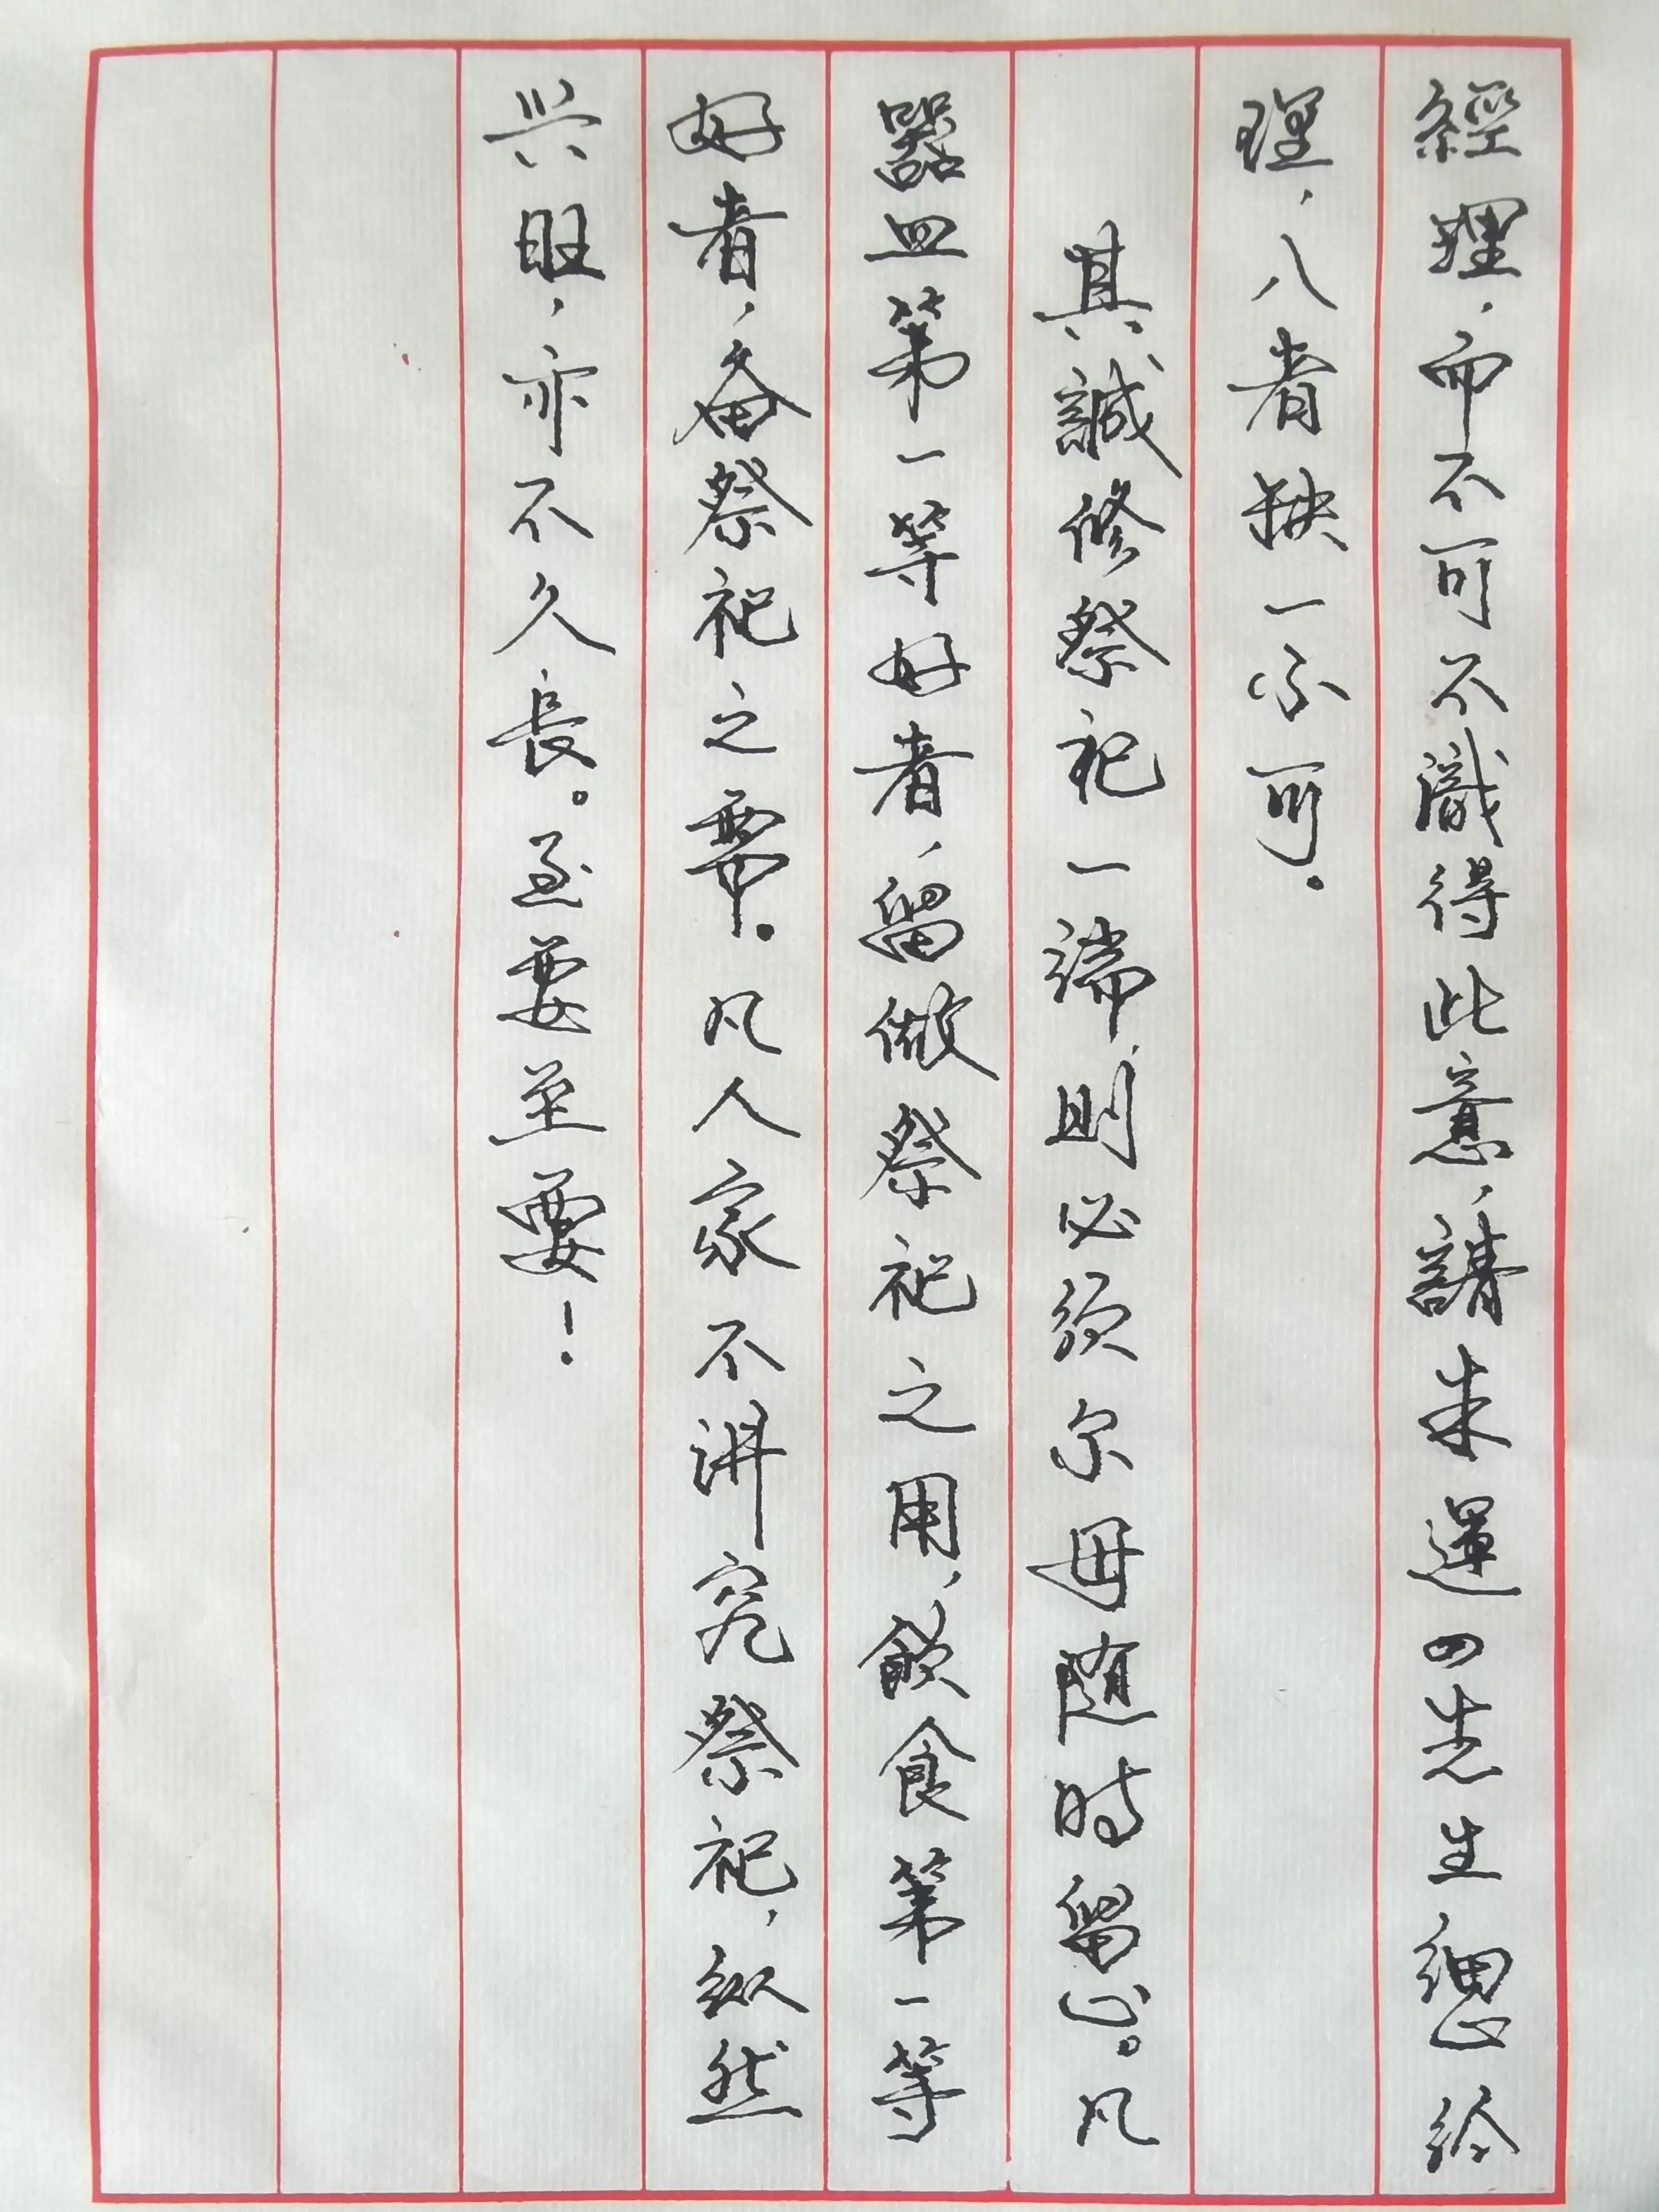 經理,而不可不識得此意,請朱運四先生細心經
理,八者缺一不可。
其誠修祭祀一端,則必須尔母随時留心。凡
器皿第一等好者,留做祭祀之用,飲食第一等
好者,备祭祀之需。凡人家不讲究祭祀,纵然
兴旺,亦不久長。至要至要!